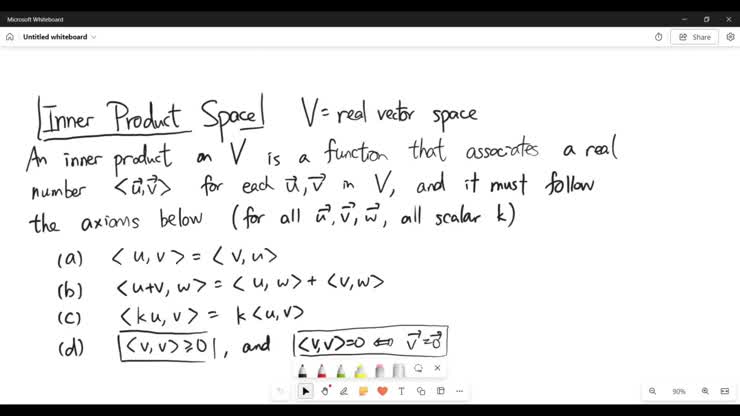 Microsoft Whiteboard
Untitled whiteboard
Share
Inner Product Space V = real vector space
An inner product on V is a function that associates a real
number <u⃗,v⃗> for each u⃗,v⃗ in V, and it must follow
the axioms below (for all u⃗,v⃗,w⃗, all scalar k)
(a) <u,v> = <v,u>
(b) <u+v,w> = <u,w> + <v,w>
(c) <ku,v> = k<u,v>
(d) <v,v> ≥ 0, and <v,v> = 0 ⇔ v⃗ = 0⃗
90%